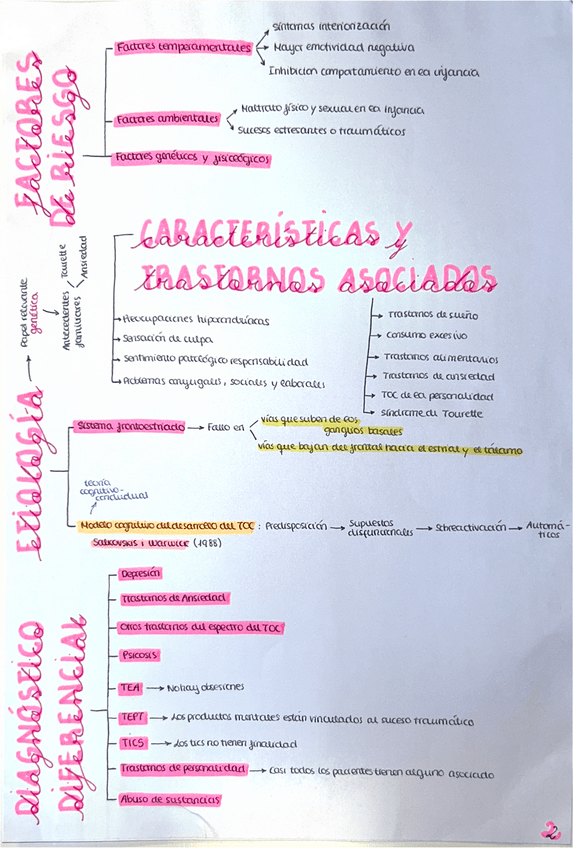 FACTORES DE RIESGO
factores de riesgo
Factores temperamentales
síntomas interiorización
Mayor emotividad negativa
Inhibición comportamiento en la infancia
Factores ambientales
Maltrato físico y sexual en la infancia
Sucesos estresantes o traumáticos
Factores genéticos y fisiológicos
CARACTERÍSTICAS Y
características y
TRASTORNOS ASOCIADOS
trastornos asociados
Preocupaciones hipocondríacas
Sensación de culpa
Sentimiento patológico responsabilidad
Problemas conyugales, sociales y laborales
Trastornos de sueño
Consumo excesivo
Trastornos alimentarios
Trastornos de ansiedad
TOC de la personalidad
Síndrome de Tourette
ETIOLOGÍA
etiología
Papel relevante
genética
Antecedentes
familiares
Tourette
Ansiedad
Sistema frontoestriado
Fallo en
vías que suben de los
ganglios basales
vías que bajan del frontal hacia el estriat y el tálamo
teoría
cognitivo-
conductual
Modelo cognitivo del desarrollo del TOC : Predisposición
Supuestos
disfuncionales
Sobreactivación
Automá-
ticos
Salkovskis i Warwick (1988)
DIAGNÓSTICO
diagnóstico
DIFERENCIAL
diferencial
Depresión
Trastornos de Ansiedad
Otros trastornos del espectro del TOC
Psicosis
TEA
No hay obsesiones
TEPT
Los productos mentales están vinculados al suceso traumático
TICS
Los tics no tienen finalidad
Trastornos de personalidad
Casi todos los pacientes tienen alguno asociado
Abuso de sustancias
2